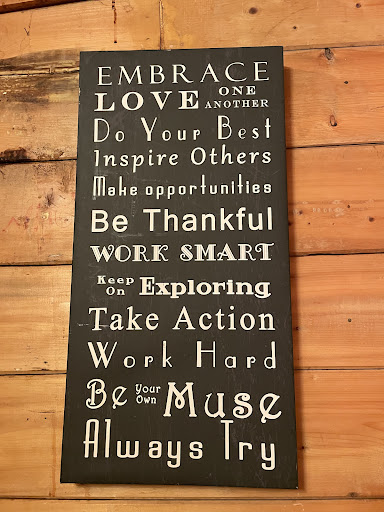 EMBRACE
LOVE ONE ANOTHER
Do Your Best
Inspire Others
Make opportunities
Be Thankful
WORK SMART
Keep On Exploring
Take Action
Work Hard
Be Your Own Muse
Always Try